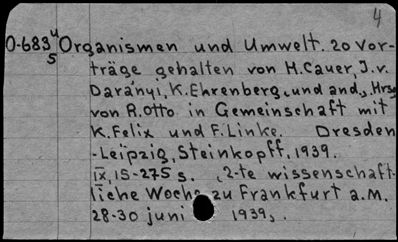 4
O-683 4/5 Organismen und Umwelt. 20 Vor-
träge gehalten von H. Cauer, J. v.
Darányi, K. Ehrenberg, und and., Hrsg
von R. Otto in Gemeinschaft mit
K. Felix und F. Linke. Dresden
-Leipzig, Steinkopff, 1939.
IX, 15-275 s. "2-te wissenschaft-
liche Woche zu Frankfurt a.M.
28-30 juni 1939".